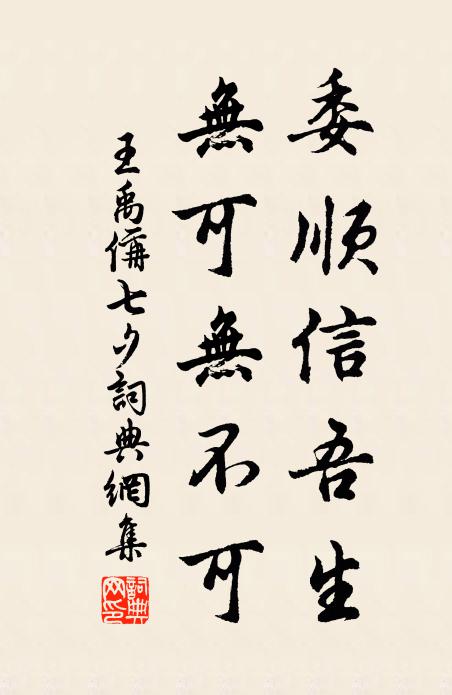 委順信吾生
無可無不可
王禹偁七夕詞典網集
詞典网印